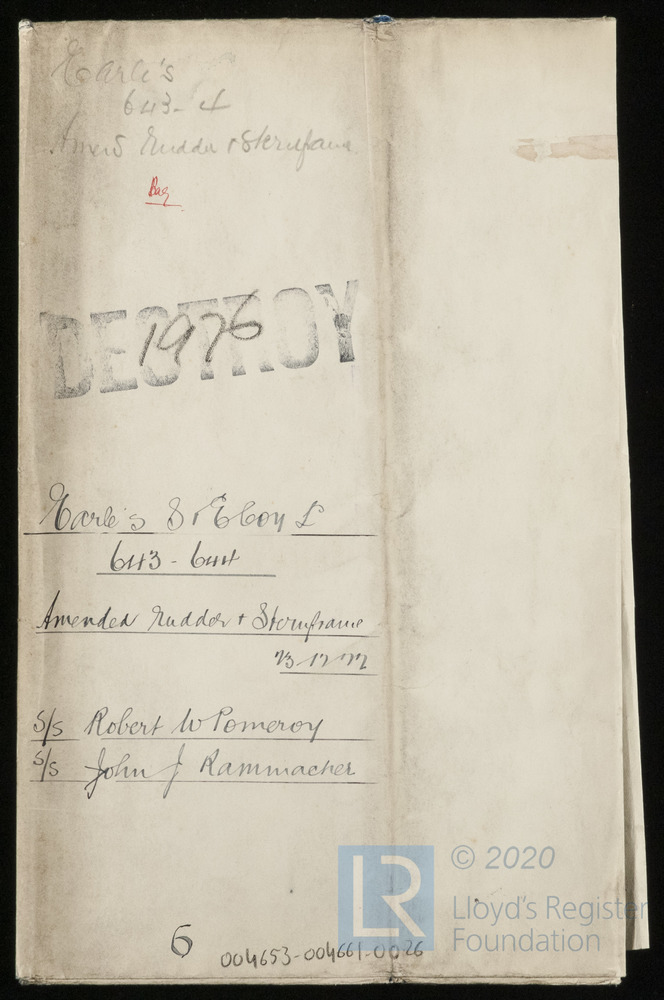 Earle's
643-4
Amend Rudder & Sternframe
Bag
DESTROY
1976
Earle's S & E Coy L
643 - 644
Amended Rudder & Sternframe
S/S Robert W Pomeroy
S/S John J Rammacher
6
004653-004661-0026
LR
© 2020
Lloyd's Register
Foundation